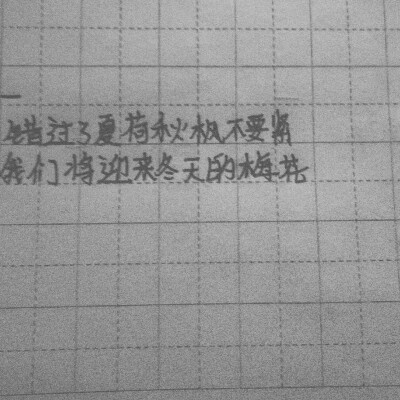 错过了夏荷秋枫不要紧
我们将迎来冬天的梅花